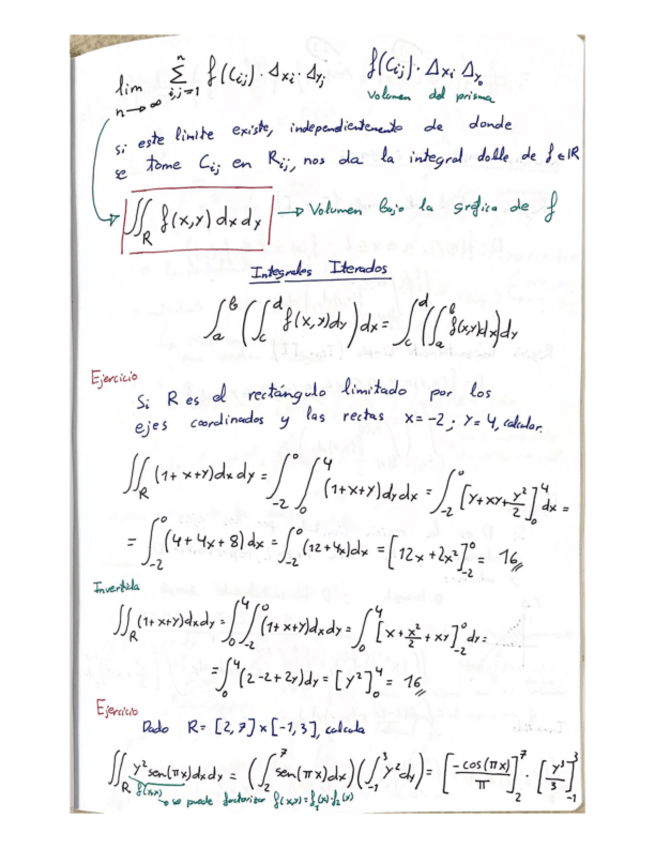 lim n→∞ Σ i,j=1 n f(Cij)·Δxi·Δyj f(Cij)·Δxi Δyj
Volumen del prisma
si este limite existe, independientemente de donde
se tome Cij en Rij, nos da la integral doble de f ∈ R
∬R f(x,y) dx dy → Volumen bajo la gráfica de f
Integrales Iterados
∫a b (∫c d f(x,y)dy) dx = ∫c d (∫a b f(x,y)dx) dy
Ejercicio
Si R es el rectángulo limitado por los
ejes coordinados y las rectas x=-2; y=4, calcular.
∬R (1+x+y)dx dy = ∫-2 0 ∫0 4 (1+x+y)dy dx = ∫-2 0 [y+xy+y²/2]0 4 dx =
= ∫-2 0 (4+4x+8)dx = ∫-2 0 (12+4x)dx = [12x+2x²]-2 0 = 16
Invertida
∬R (1+x+y)dxdy = ∫0 4 ∫-2 0 (1+x+y)dxdy = ∫0 4 [x+x²/2+xy]-2 0 dy =
= ∫0 4 (2-2+2y)dy = [y²]0 4 = 16
Ejercicio
Dado R=[2,7]×[-1,3], calcula
∬R y² sen(πx)dxdy = (∫2 7 sen(πx)dx)(∫-1 3 y²dy) = [-cos(πx)/π]2 7 · [y³/3]-1 3
f(x,y)
→ se puede factorizar f(x,y)=f1(x)·f2(x)